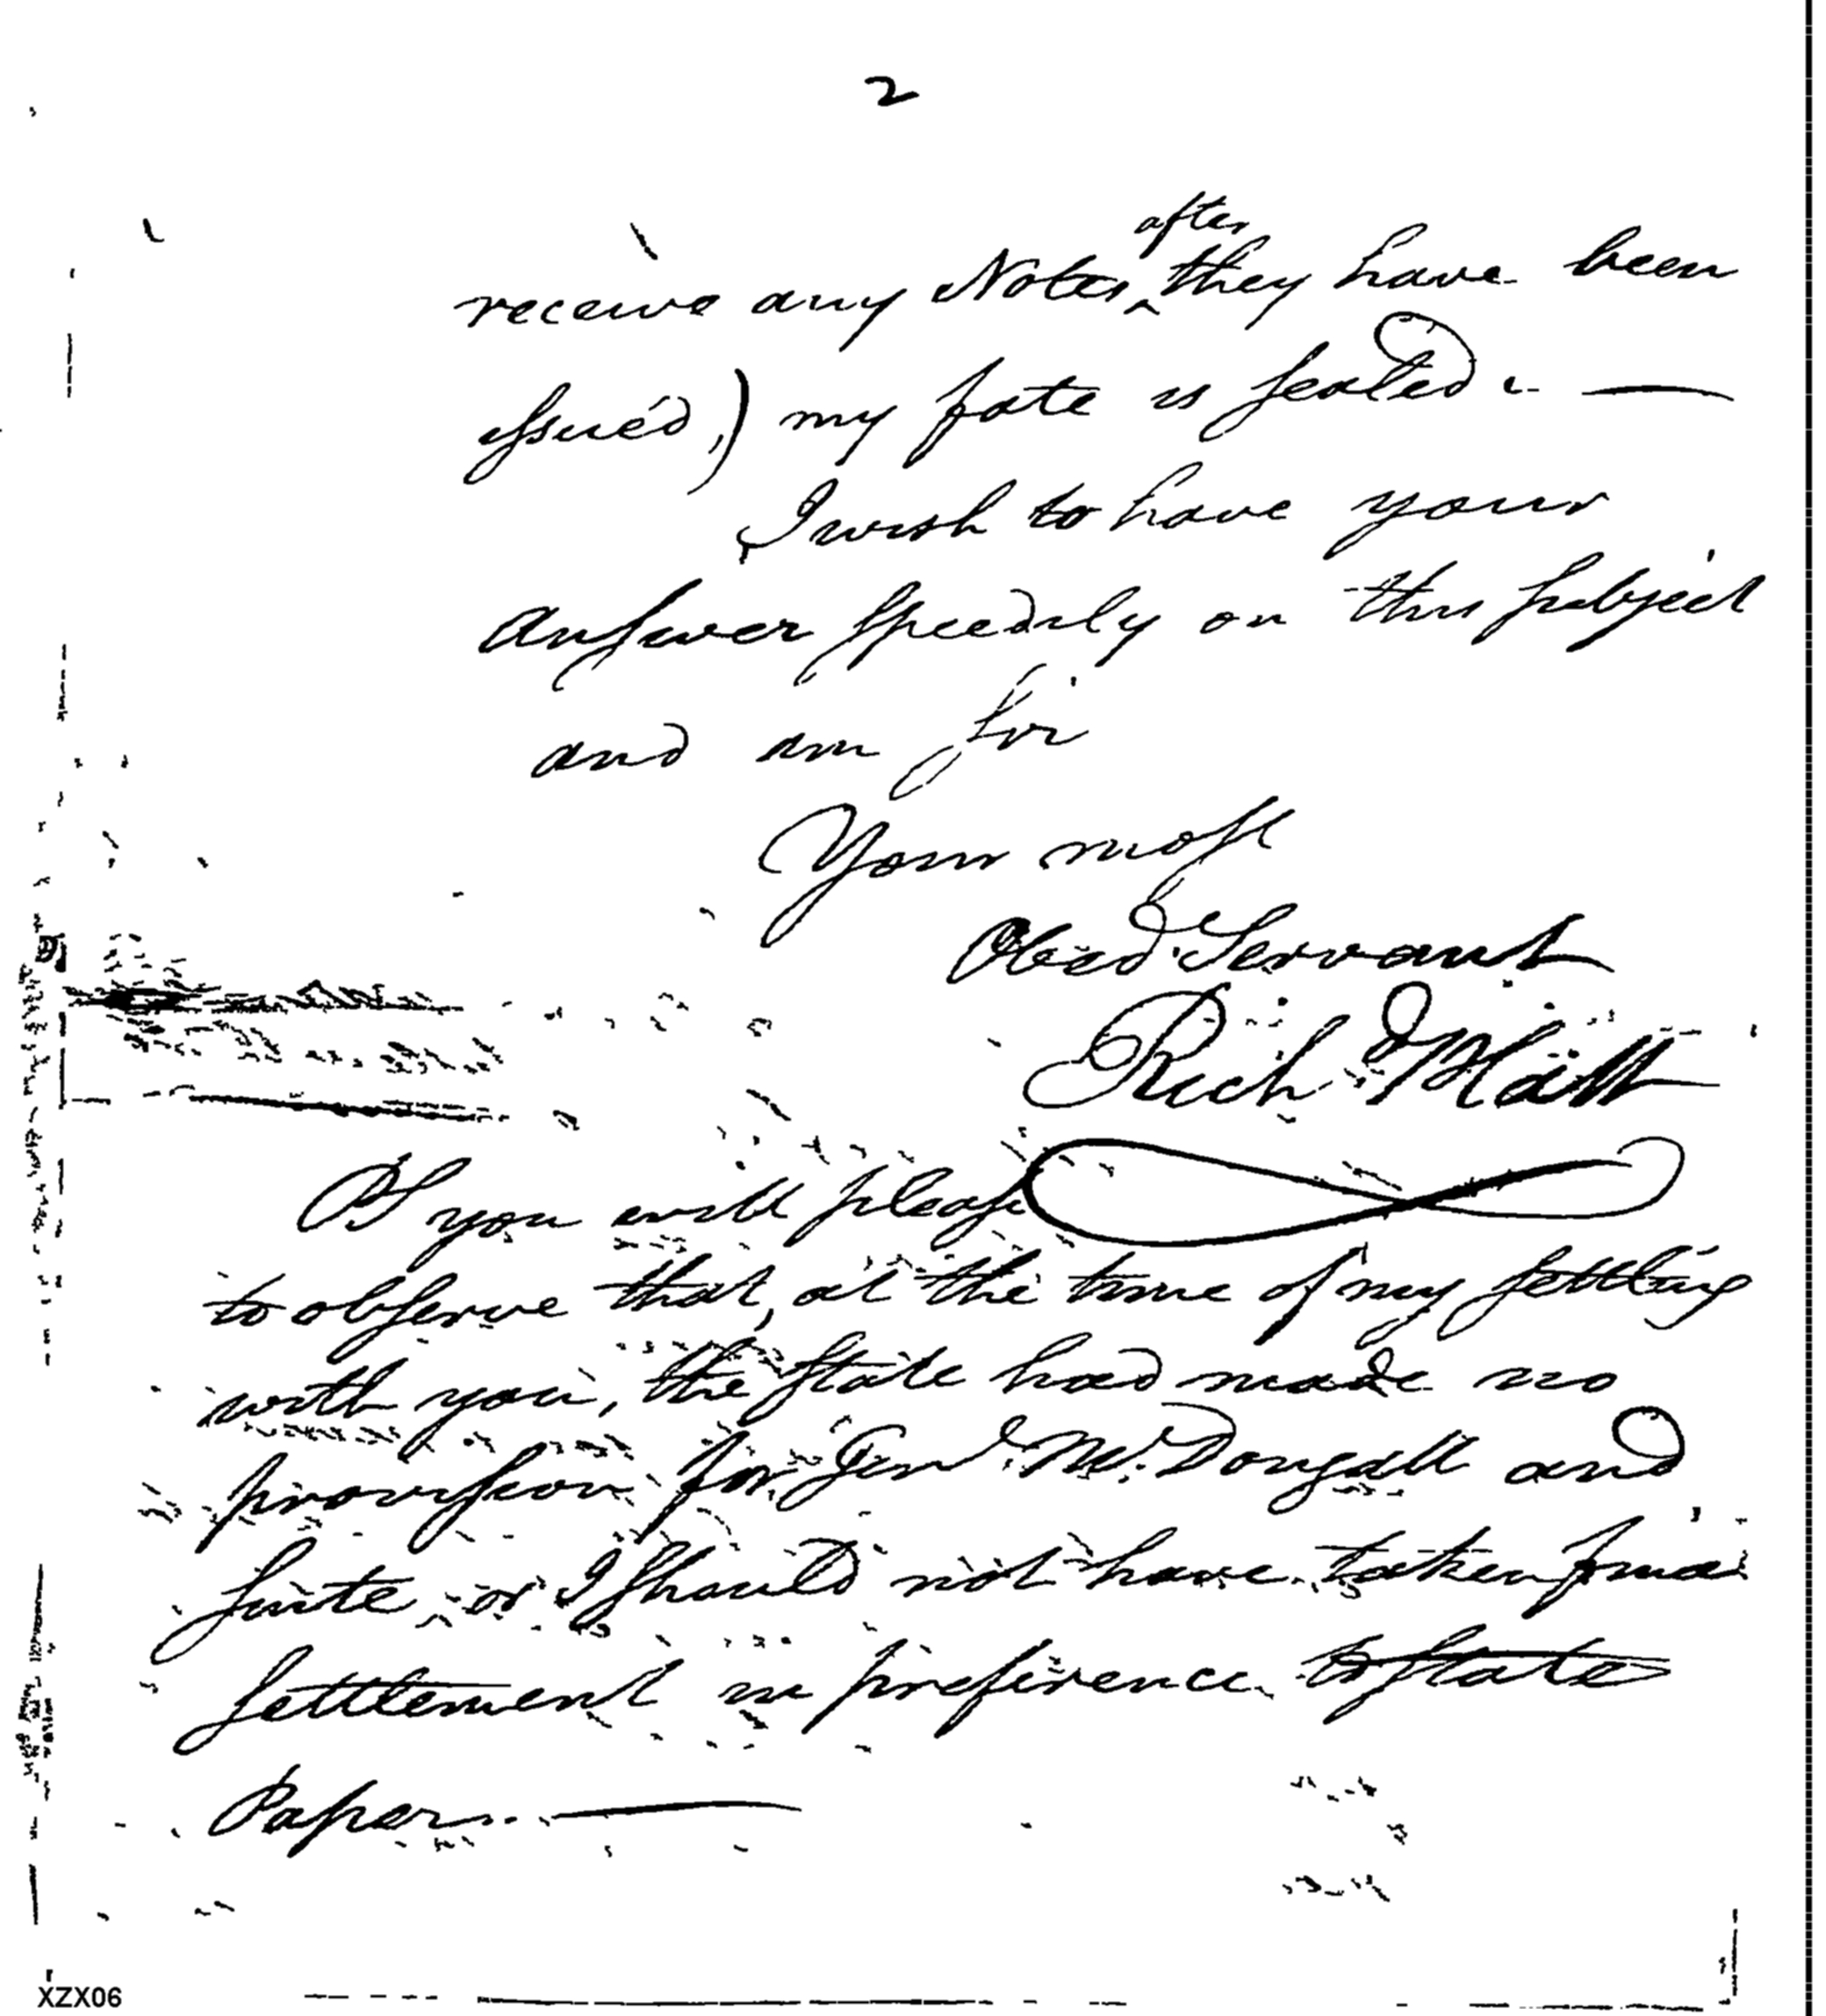 2
receive any Notes after they have been
issued,) my fate is sealed. —
I wish to have your
Answer speedily on this subject
and am sir
Your most
Obed. Servant
Richd Platt
PS you will please
to observe that, at the time of my settling
with you, the state had made no
provision for Genl. McDougall and
suite, or I should not have taken final
settlement in preference to state
Paper. —
XZX06